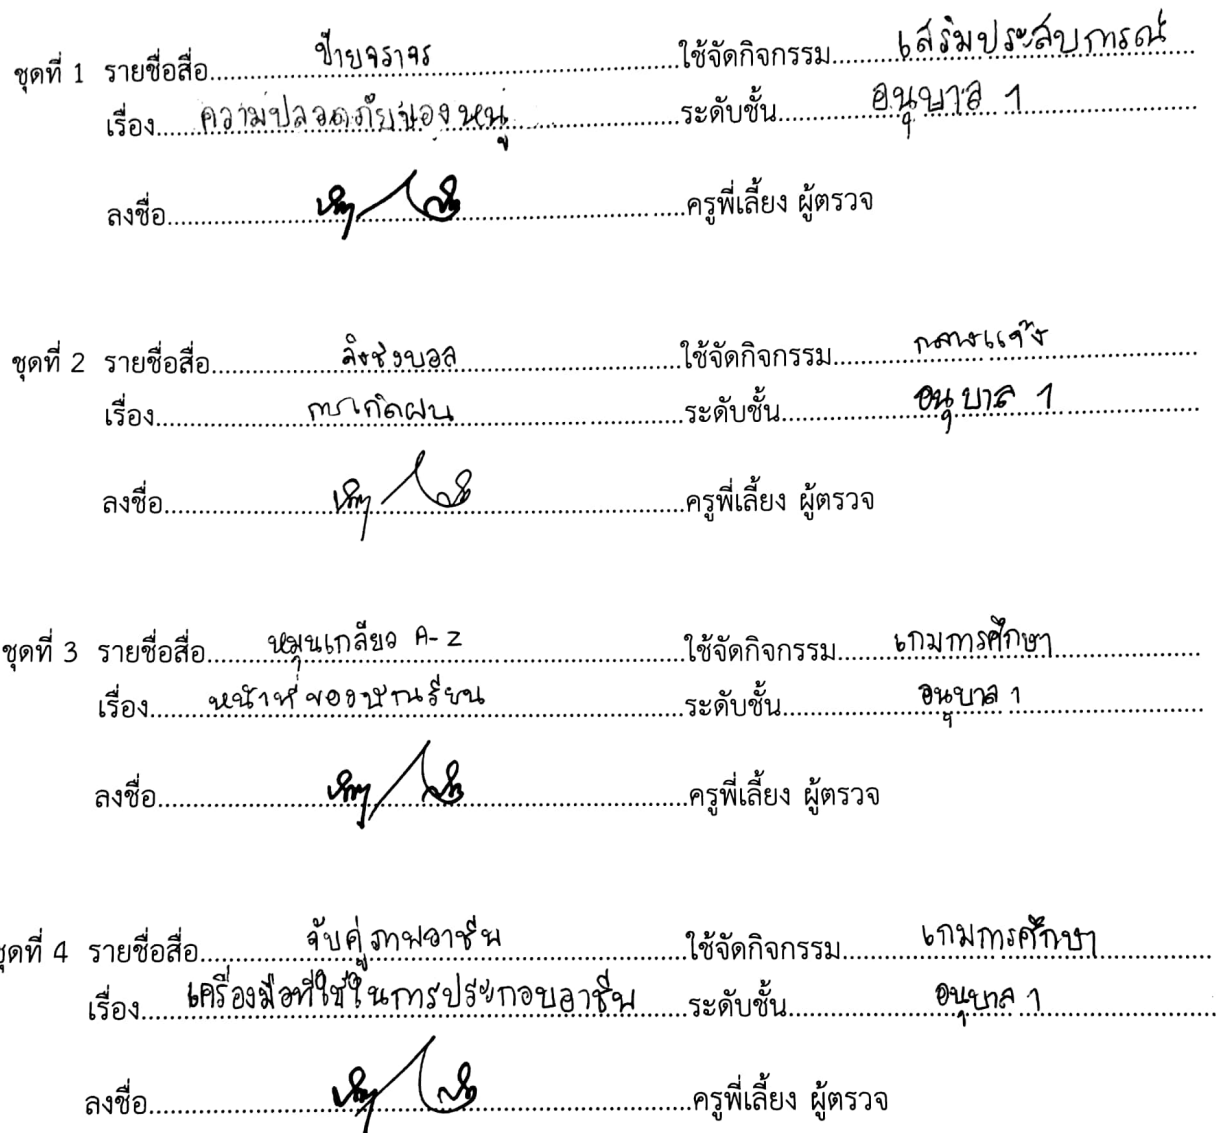 ชุดที่ 1 รายชื่อสื่อ ป้ายจราจร ใช้จัดกิจกรรม เสริมประสบการณ์
เรื่อง ความปลอดภัยของหนู ระดับชั้น อนุบาล 1
ลงชื่อ ครูพี่เลี้ยง ผู้ตรวจ
ชุดที่ 2 รายชื่อสื่อ ลิงชิงบอล ใช้จัดกิจกรรม กลางแจ้ง
เรื่อง การเกิดฝน ระดับชั้น อนุบาล 1
ลงชื่อ ครูพี่เลี้ยง ผู้ตรวจ
ชุดที่ 3 รายชื่อสื่อ หมุนเกลียว A-Z ใช้จัดกิจกรรม เกมการศึกษา
เรื่อง หน้าที่ของนักเรียน ระดับชั้น อนุบาล 1
ลงชื่อ ครูพี่เลี้ยง ผู้ตรวจ
ชุดที่ 4 รายชื่อสื่อ จับคู่ภาพอาชีพ ใช้จัดกิจกรรม เกมการศึกษา
เรื่อง เครื่องมือที่ใช้ในการประกอบอาชีพ ระดับชั้น อนุบาล 1
ลงชื่อ ครูพี่เลี้ยง ผู้ตรวจ